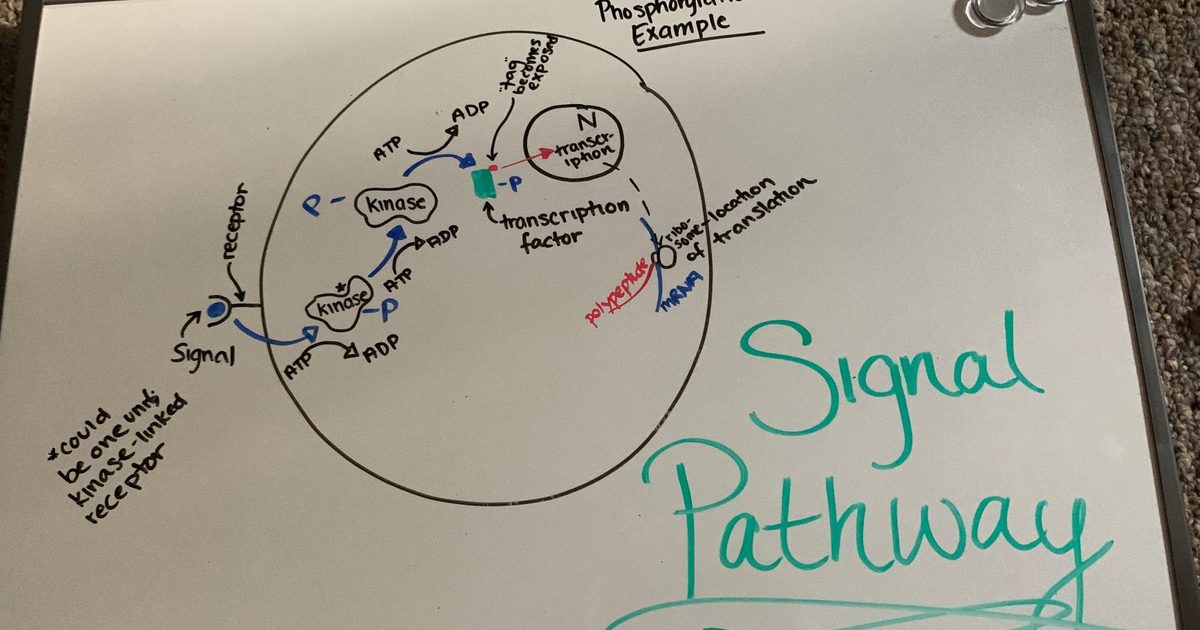 Phosphorylation
Example
"tag"
becomes
exposed
ATP
ADP
N
transcr-
iption
P -
kinase
-P
transcription
factor
ribo-
some-location
of translation
polypeptide
mRNA
ATP
ADP
receptor
*
kinase
-P
Signal
ATP
ADP
*could
be one unit;
kinase-linked
receptor
Signal
Pathway